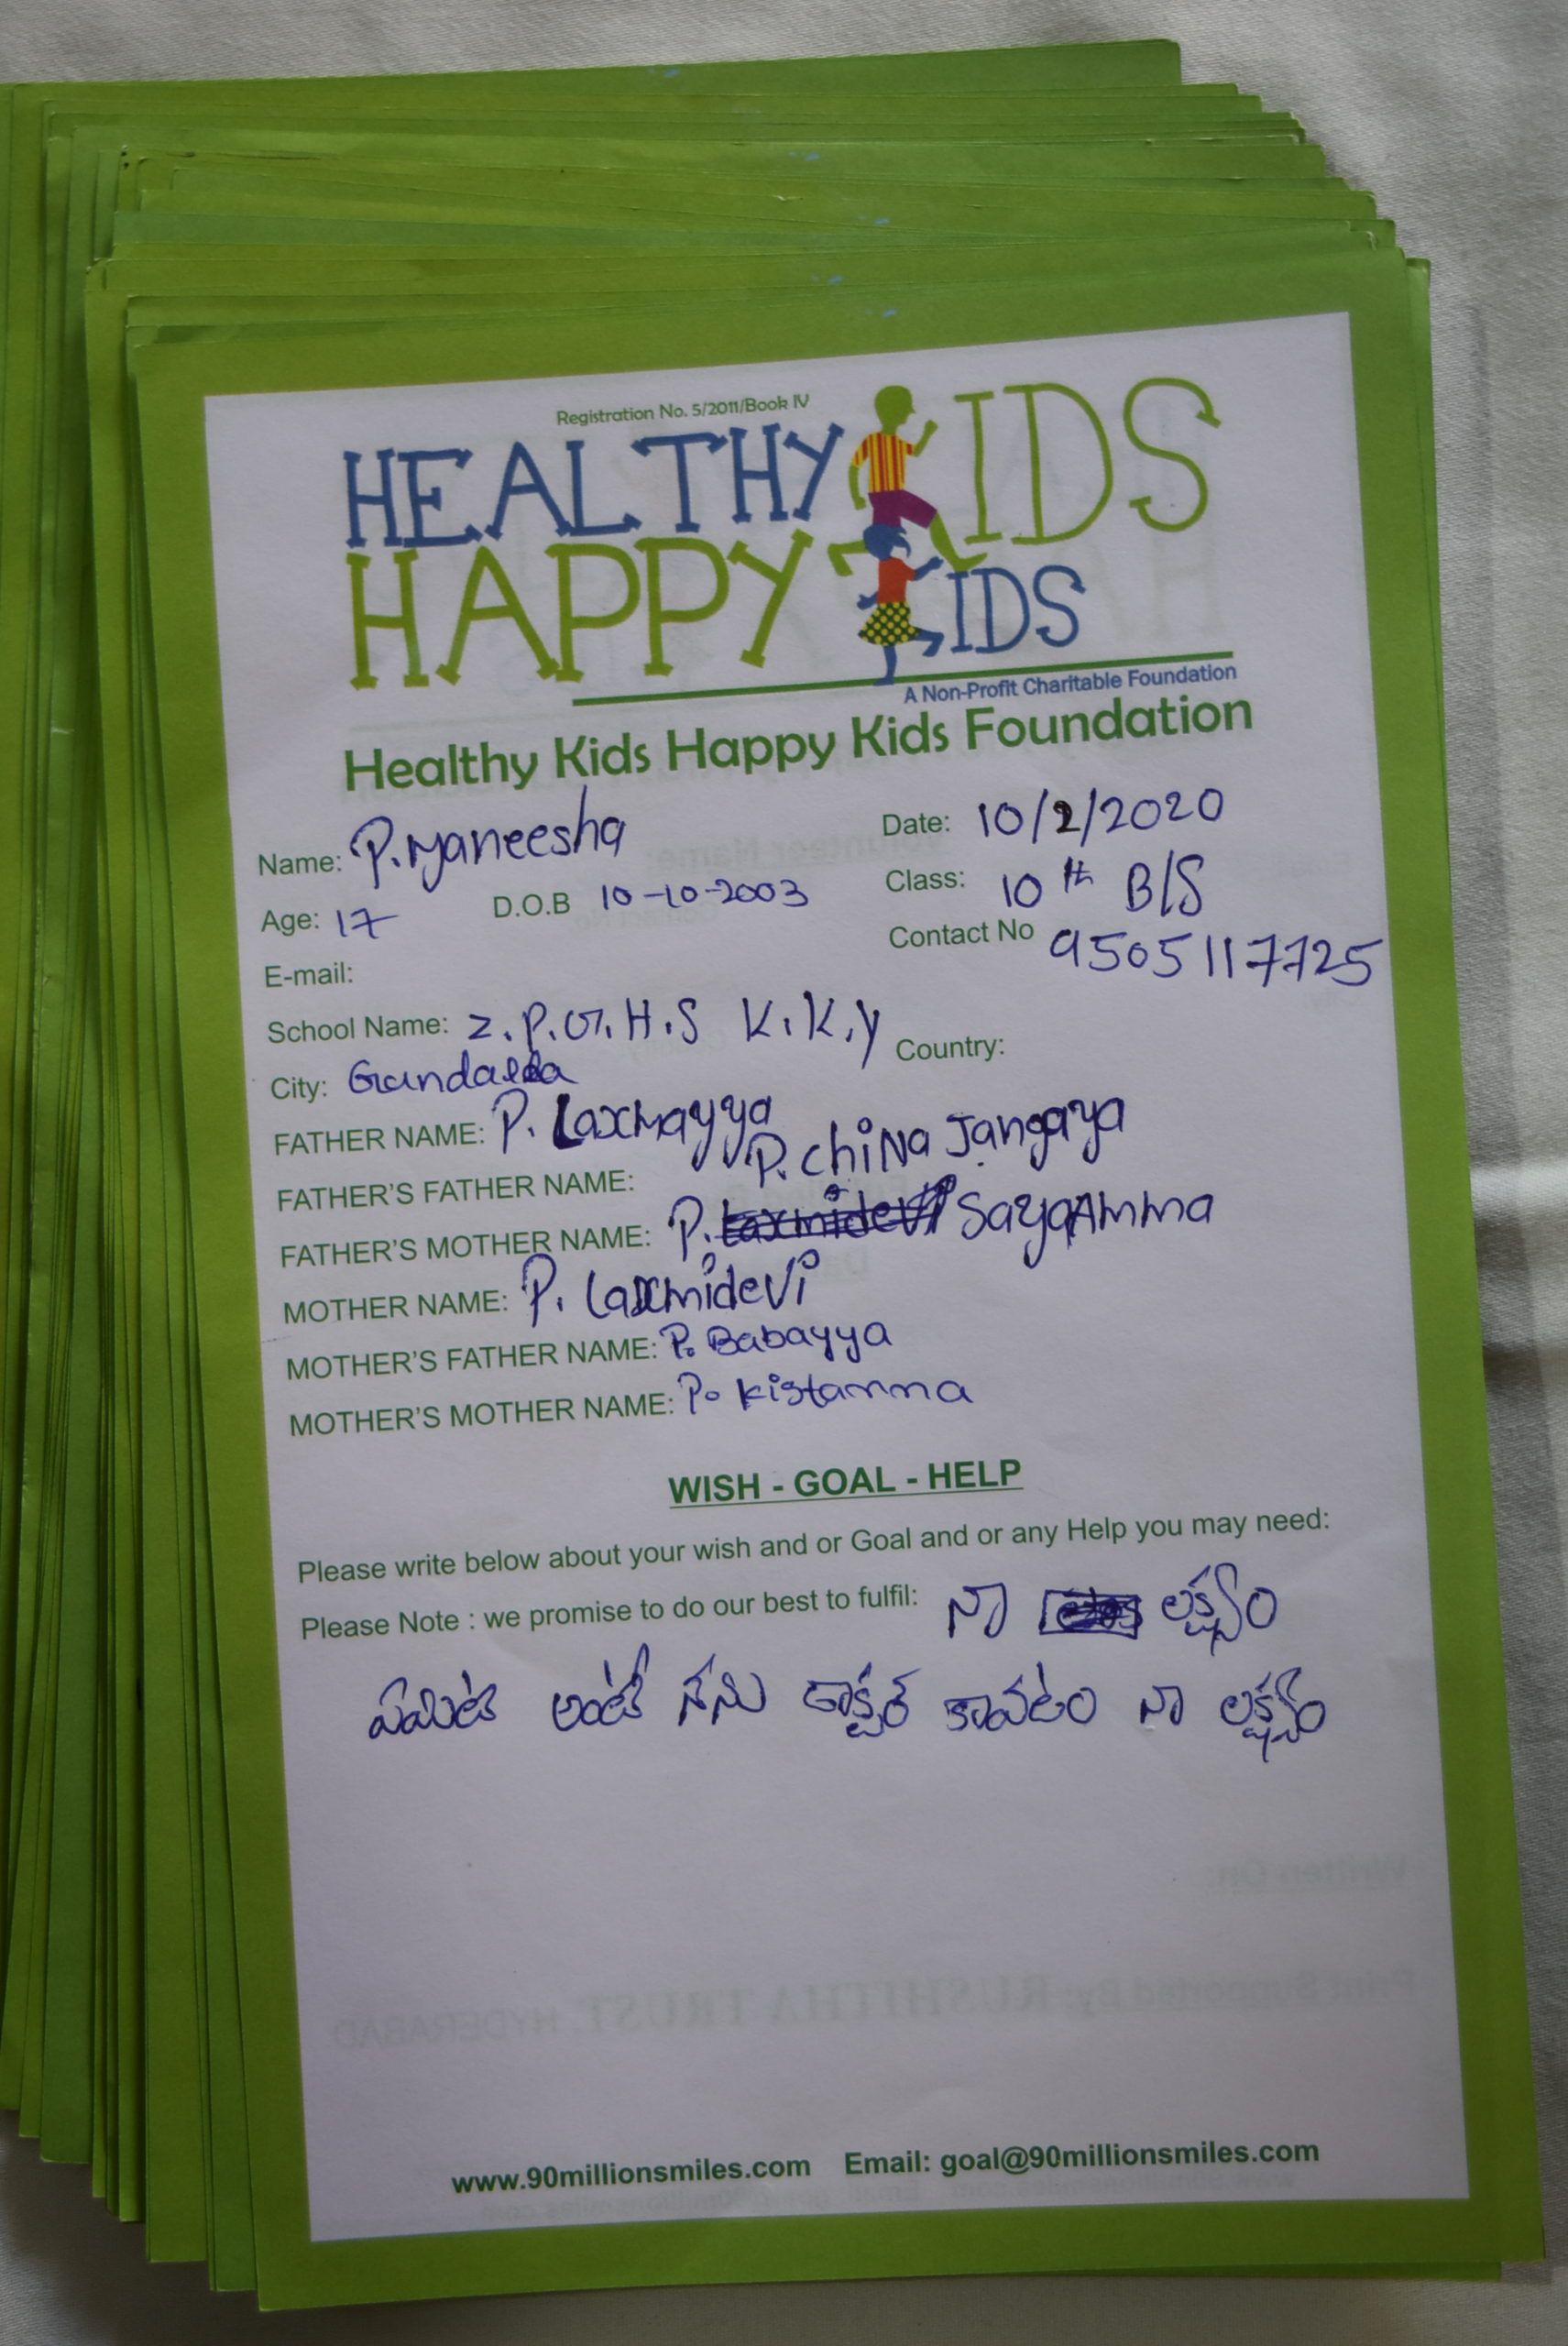 Registration No. 5/2011/Book IV
HEALTHY KIDS
HAPPY KIDS
A Non-Profit Charitable Foundation
Healthy Kids Happy Kids Foundation
Name: P. Maneesha Date: 10/2/2020
Age: 17 D.O.B 10-10-2003 Class: 10th B/S
E-mail: Contact No 9505117725
School Name: Z.P.G.H.S K.K.y Country:
City:
FATHER NAME: P. Laxmayya
FATHER'S FATHER NAME: P. China Jangaya
FATHER'S MOTHER NAME: P. SayaAmma
MOTHER NAME: P. Laxmidevi
MOTHER'S FATHER NAME: P. Babayya
MOTHER'S MOTHER NAME: P. Kistamma
WISH - GOAL - HELP
Please write below about your wish and or Goal and or any Help you may need:
Please Note : we promise to do our best to fulfil: నా లక్ష్యం
ఏమిటి అంటే నేను డాక్టర్ కావటం నా లక్ష్యం
www.90millionsmiles.com Email: goal@90millionsmiles.com